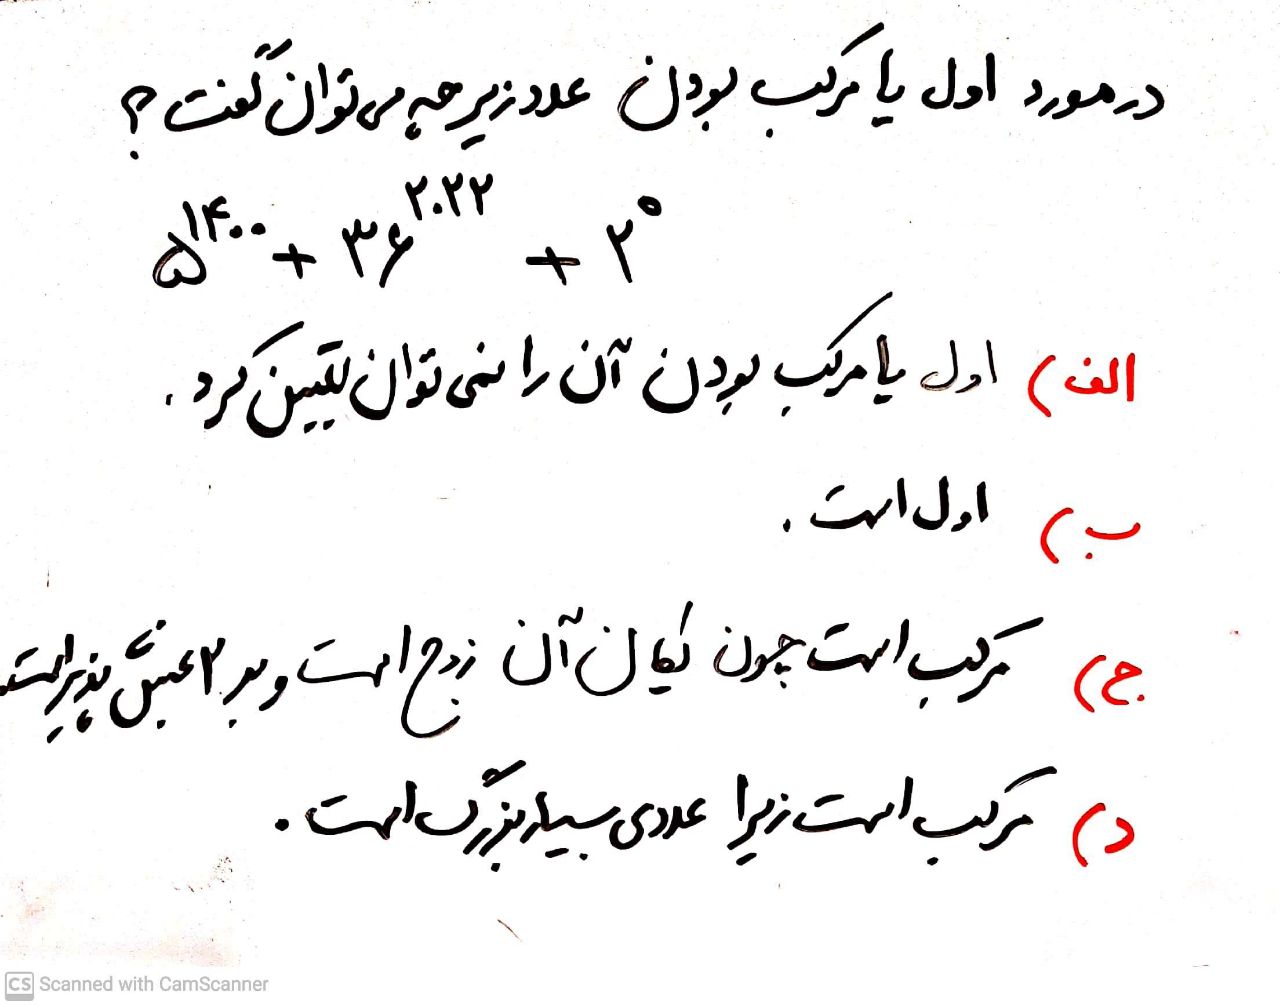 در مورد اول یا مرکب بودن عدد زیر چه می توان گفت ؟
۵^۱۴۰۰ + ۳۶^۲۰۲۲ + ۲^۰
الف) اول یا مرکب بودن آن را نمی توان تعیین کرد .
ب) اول است .
ج) مرکب است چون یکان آن زوج است و بر ۲ بخش پذیر است.
د) مرکب است زیرا عددی بسیار بزرگ است .
CS Scanned with CamScanner